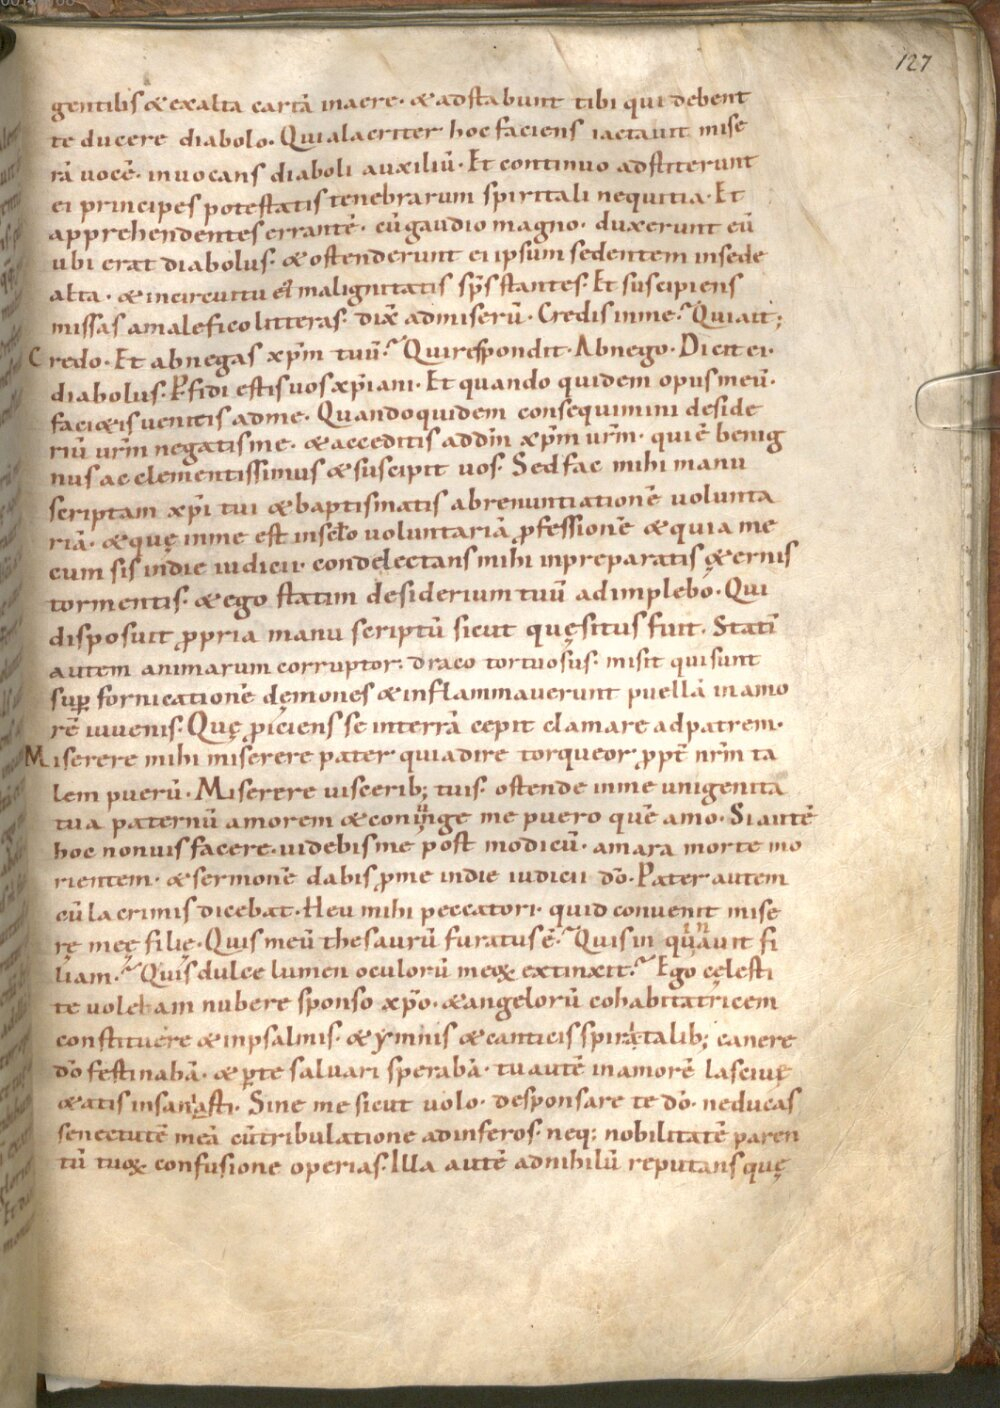 127
gentibus & exalta cartā in aere · & adstabunt tibi qui debent
te ducere diabolo · Qui alacriter hoc faciens iactauit mise
rā uocē · inuocans diaboli auxiliū · Et continuo adstiterunt
ei principes potestatis tenebrarum spiritali nequitia · Et
apprehendentes errantē · cū gaudio magno · duxerunt eū
ubi erat diabolus · & ostenderunt ei ipsum sedentem in sede
alta · & in circuitu ei malignitatis sp̄s stantes · Et suscipiens
missas a malefico litteras · dix̄ ad miserū · Credis in me? Qui ait;
Credo · Et abnegas xp̄m tuū? Qui respondit · Abnego · Dicit ei ·
diabolus · ꝑfidi estis uos xp̄iani · Et quando quidem opus meū ·
faci&is uenitis ad me · Quandoquidem consequimini deside
riū ur̄m negatis me · & acceditis ad dn̄m xp̄m ur̄m · qui ē benig
nus ac clementissimus & suscipit uos · Sed fac mihi manu
scriptam xp̄i tui & baptismatis abrenuntiationē uolunta
riā · & quę in me est in sc̄lo uoluntariā ꝓfessionē & quia me
cum sis in die iudicii · condelectans mihi in preparatis & ernis
tormentis · & ego statim desiderium tuū adimplebo · Qui
disposuit ꝓpria manu scriptū sicut quęsitus fuit · Statī
autem animarum corruptor · draco tortuosus · misit qui sunt
suꝑ fornicationē dęmones & inflammauerunt puellā in amo
rē iuuenis · Quę ꝓiciens se in terrā cepit clamare ad patrem ·
Miserere mihi miserere pater quia dire torqueor ꝓpt̄ nr̄m ta
lem puerū · Miserere uisceribꝫ tuis · ostende in me unigenita
tua paternū amorem & coniunge me puero quē amo · Si autē
hoc non uis facere · uidebis me post modicū · amara morte mo
rientem · & sermonē dabis ꝓ me in die iudicii dō · Pater autem
cū lacrimis dicebat · Heu mihi peccatori · quid conuenit mise
rę męę filię · Quis meū thesaurū furatus ē? Quis inquinauit fi
liam? Quis dulce lumen oculorū meoꝝ extinxit? Ego cęlesti
te uolebam nubere sponso xp̄o · & angelorū cohabitatricem
constituere & in psalmis · & ymnis & canticis spiritalibꝫ canere
dō festinabā · & ꝑ te saluari sperabā · tu autē in amorē lasciuę
&atis insanasti · Sine me sicut uolo · desponsare te dō · ne ducas
senectutē meā cū tribulatione ad inferos · neqꝫ nobilitatē paren
tū tuoꝝ confusione operias · Illa autē ad nihilū reputans quę